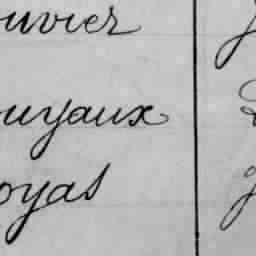 ouvier
ouyaux
oyas